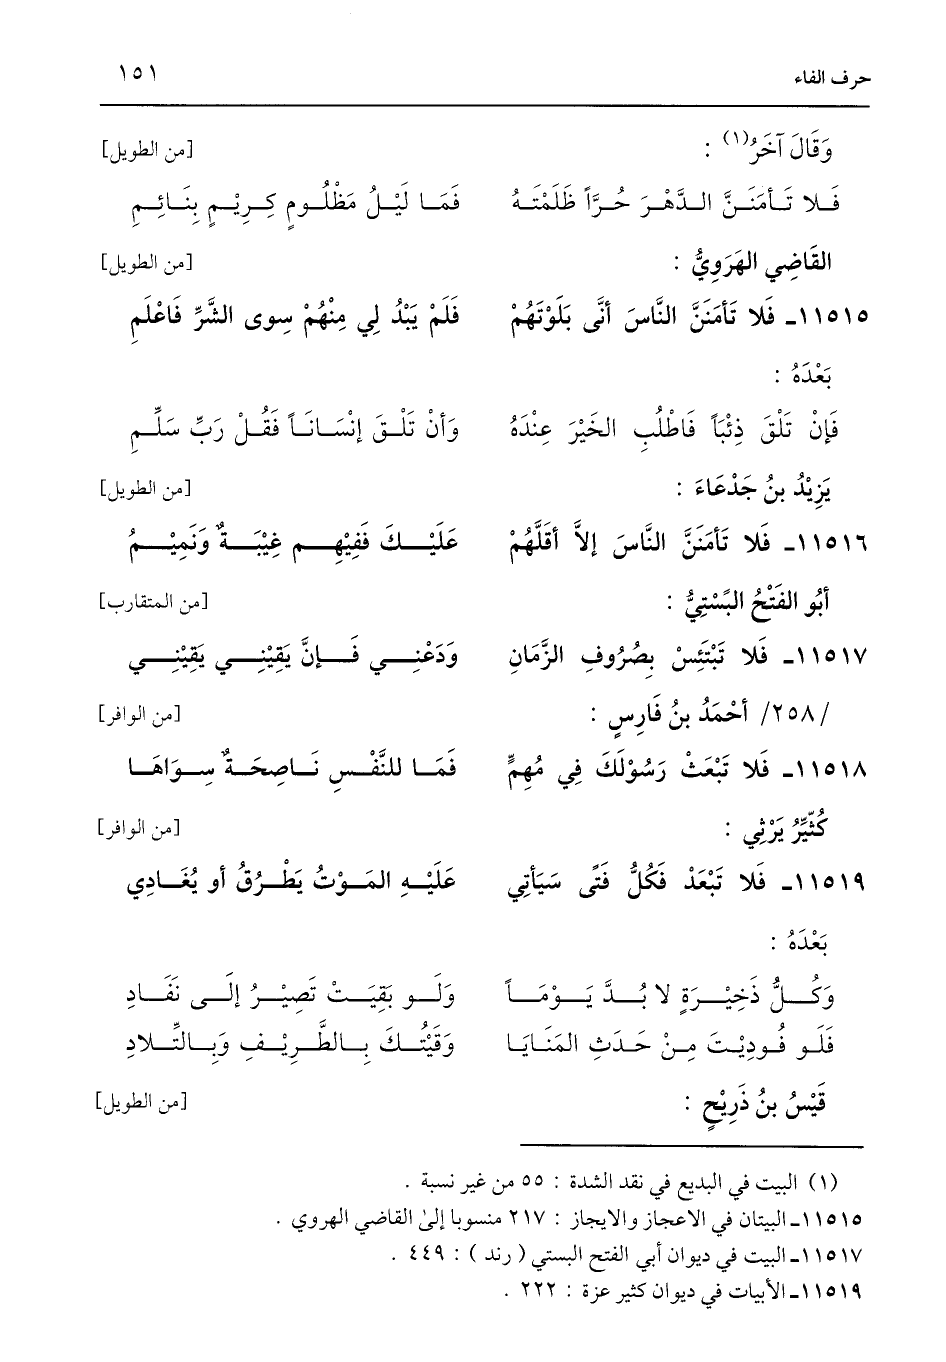 حرف الفاء ١٥١
وَقَالَ آخَرُ(١) : [من الطويل]
فَـلا تَـأمَنَـنَّ الـدَّهْـرَ حُـرَّاً ظَلَمْتَـهُ فَمَـا لَيْـلُ مَظْلُـومٍ كِـرِيْـمٍ بِنَـائِـمِ
القَاضِي الهَرَوِيُّ : [من الطويل]
١١٥١٥ـ فَلا تَأمَنَنَّ النَّاسَ أنَّى بَلَوْتَهُمْ فَلَمْ يَبْدُ لِي مِنْهُمْ سِوى الشَّرِّ فَاعْلَمِ
بَعْدَهُ :
فَإنْ تَلْقَ ذِئْبَاً فَاطْلُبِ الخَيْرَ عِنْدَهُ وَأنْ تَلْـقَ إنْسَـانَـاً فَقُـلْ رَبِّ سَلِّـمِ
يَزِيْدُ بنُ جَدْعَاءَ : [من الطويل]
١١٥١٦ـ فَلا تَأمَننَّ النَّاسَ إلاَّ أقَلَّهُمْ عَلَيْـــكَ فَفِيْهِـــم غِيْبَـــةٌ وَنَمِيْـــمُ
أبُو الفَتْحُ البًسْتِيُّ : [من المتقارب]
١١٥١٧ـ فَلا تَبْتَئِسْ بِصُرُوفِ الزَّمَانِ وَدَعْنِــــي فَــــإنَّ يَقِيْنِــــي يَقِيْنِــــي
/٢٥٨/ أحْمَدُ بنُ فَارِسٍ : [من الوافر]
١١٥١٨ـ فَلا تَبْعَثْ رَسُوْلَكَ فِي مُهِمٍّ فَمَــا للنَّفْــسِ نَــاصِحَــةٌ سِــوَاهَــا
كُثَيِّرُ يَرْثِي : [من الوافر]
١١٥١٩ـ فَلا تَبْعَدْ فَكُلُّ فَتًى سَيَأتِي عَلَيْـهِ المَـوْتُ يَطْـرُقُ أو يُغَـادِي
بَعْدَهُ :
وَكُــلُّ ذَخِيْــرَةٍ لا بُــدَّ يَــوْمَــاً وَلَــو بَقِيَــتْ تَصِيْــرُ إلَــى نَفَــادِ
فَلَـو فُـودِيْـتَ مِـنْ حَـدَثِ المَنَـايَـا وَقَيْتُــكَ بِــالطَّــرِيْــفِ وَبِــالتِّــلادِ
قَيْسُ بنُ ذَرِيْحٍ : [من الطويل]
(١) البيت في البديع في نقد الشدة : ٥٥ من غير نسبة .
١١٥١٥ـ البيتان في الاعجاز والايجاز : ٢١٧ منسوبا إلىٰ القاضي الهروي .
١١٥١٧ـ البيت في ديوان أبي الفتح البستي ( رند ) : ٤٤٩ .
١١٥١٩ـ الأبيات في ديوان كثير عزة : ٢٢٢ .